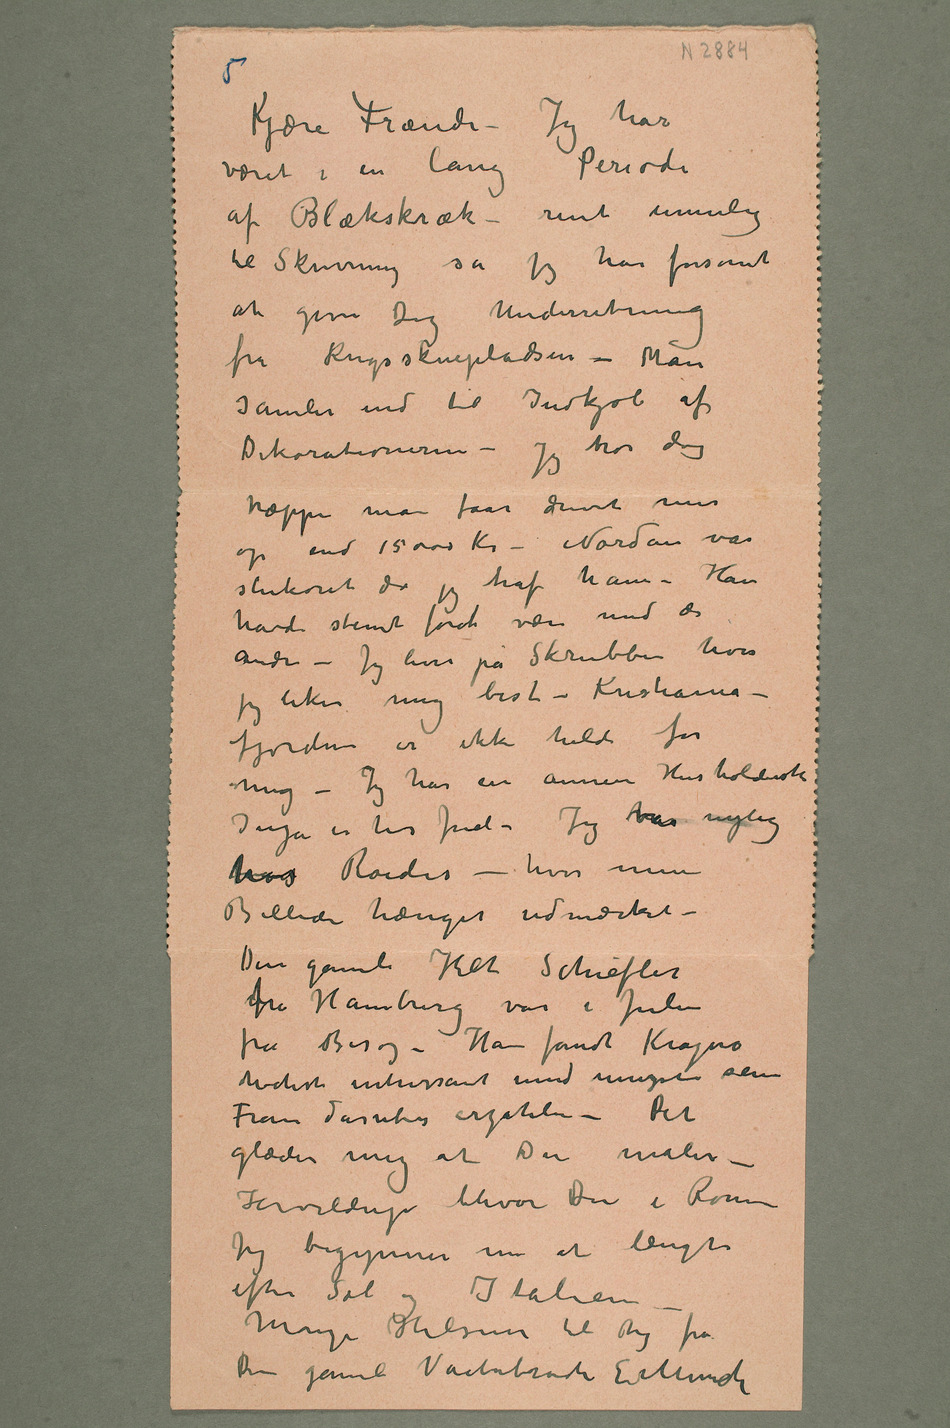 N 2884
5
Kjære Frænde – Jeg har
været i en lang Periode
af Blækskræk – rent umulig
til Skrivning så jeg har forsømt
at give Dig Underretning
fra Krigsskuepladsen – Man
samler ind til Indkjøb af
Dekorationerne – Jeg tror dog
næppe man faar drevet mer
op end 15000 Kr – Nordan var
slukøret da jeg traf ham – Han
havde stemt først være med de
andre – Jeg lever på Skrubben hvor
jeg liker mig best – Kristiania-
fjorden er ikke heldig for
mig – Jeg har en annen Husholderske
Inga er her fremdeles – Jeg var nylig
hos Roedes – hvor mine
Billeder hænger udmærket –
Den gamle Helt Schiefler
fra Hamburg var i Julen
fra Besøg – Han fandt Kragerø
høchst interessant und
Frau
glæder mig at Du maler –
Hvorlænge bliver Du i Rom
Jeg begynner nu at længte
efter Sol og Italien –
Mange Hilsener til Dig fra
Din gamle E Munch